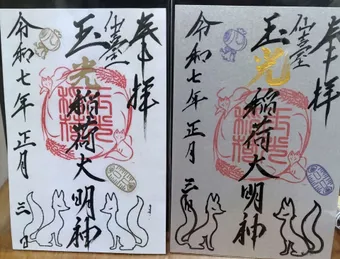 奉拝
仙臺
玉光稲荷大明神
令和七年正月
三日
奉拝
仙臺
玉光稲荷大明神
令和七年正月